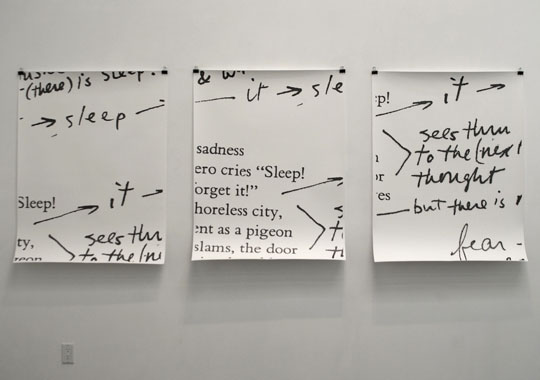 (there) is sleep.
→ sleep —
Sleep!
it →
ty,
sees thru
to the (ne
&
it → sle
sadness
ero cries “Sleep!
orget it!”
horeless city,
nt as a pigeon
slams, the door
p!
it →
sees thru
to the (next
thought
es
but there is
fear -